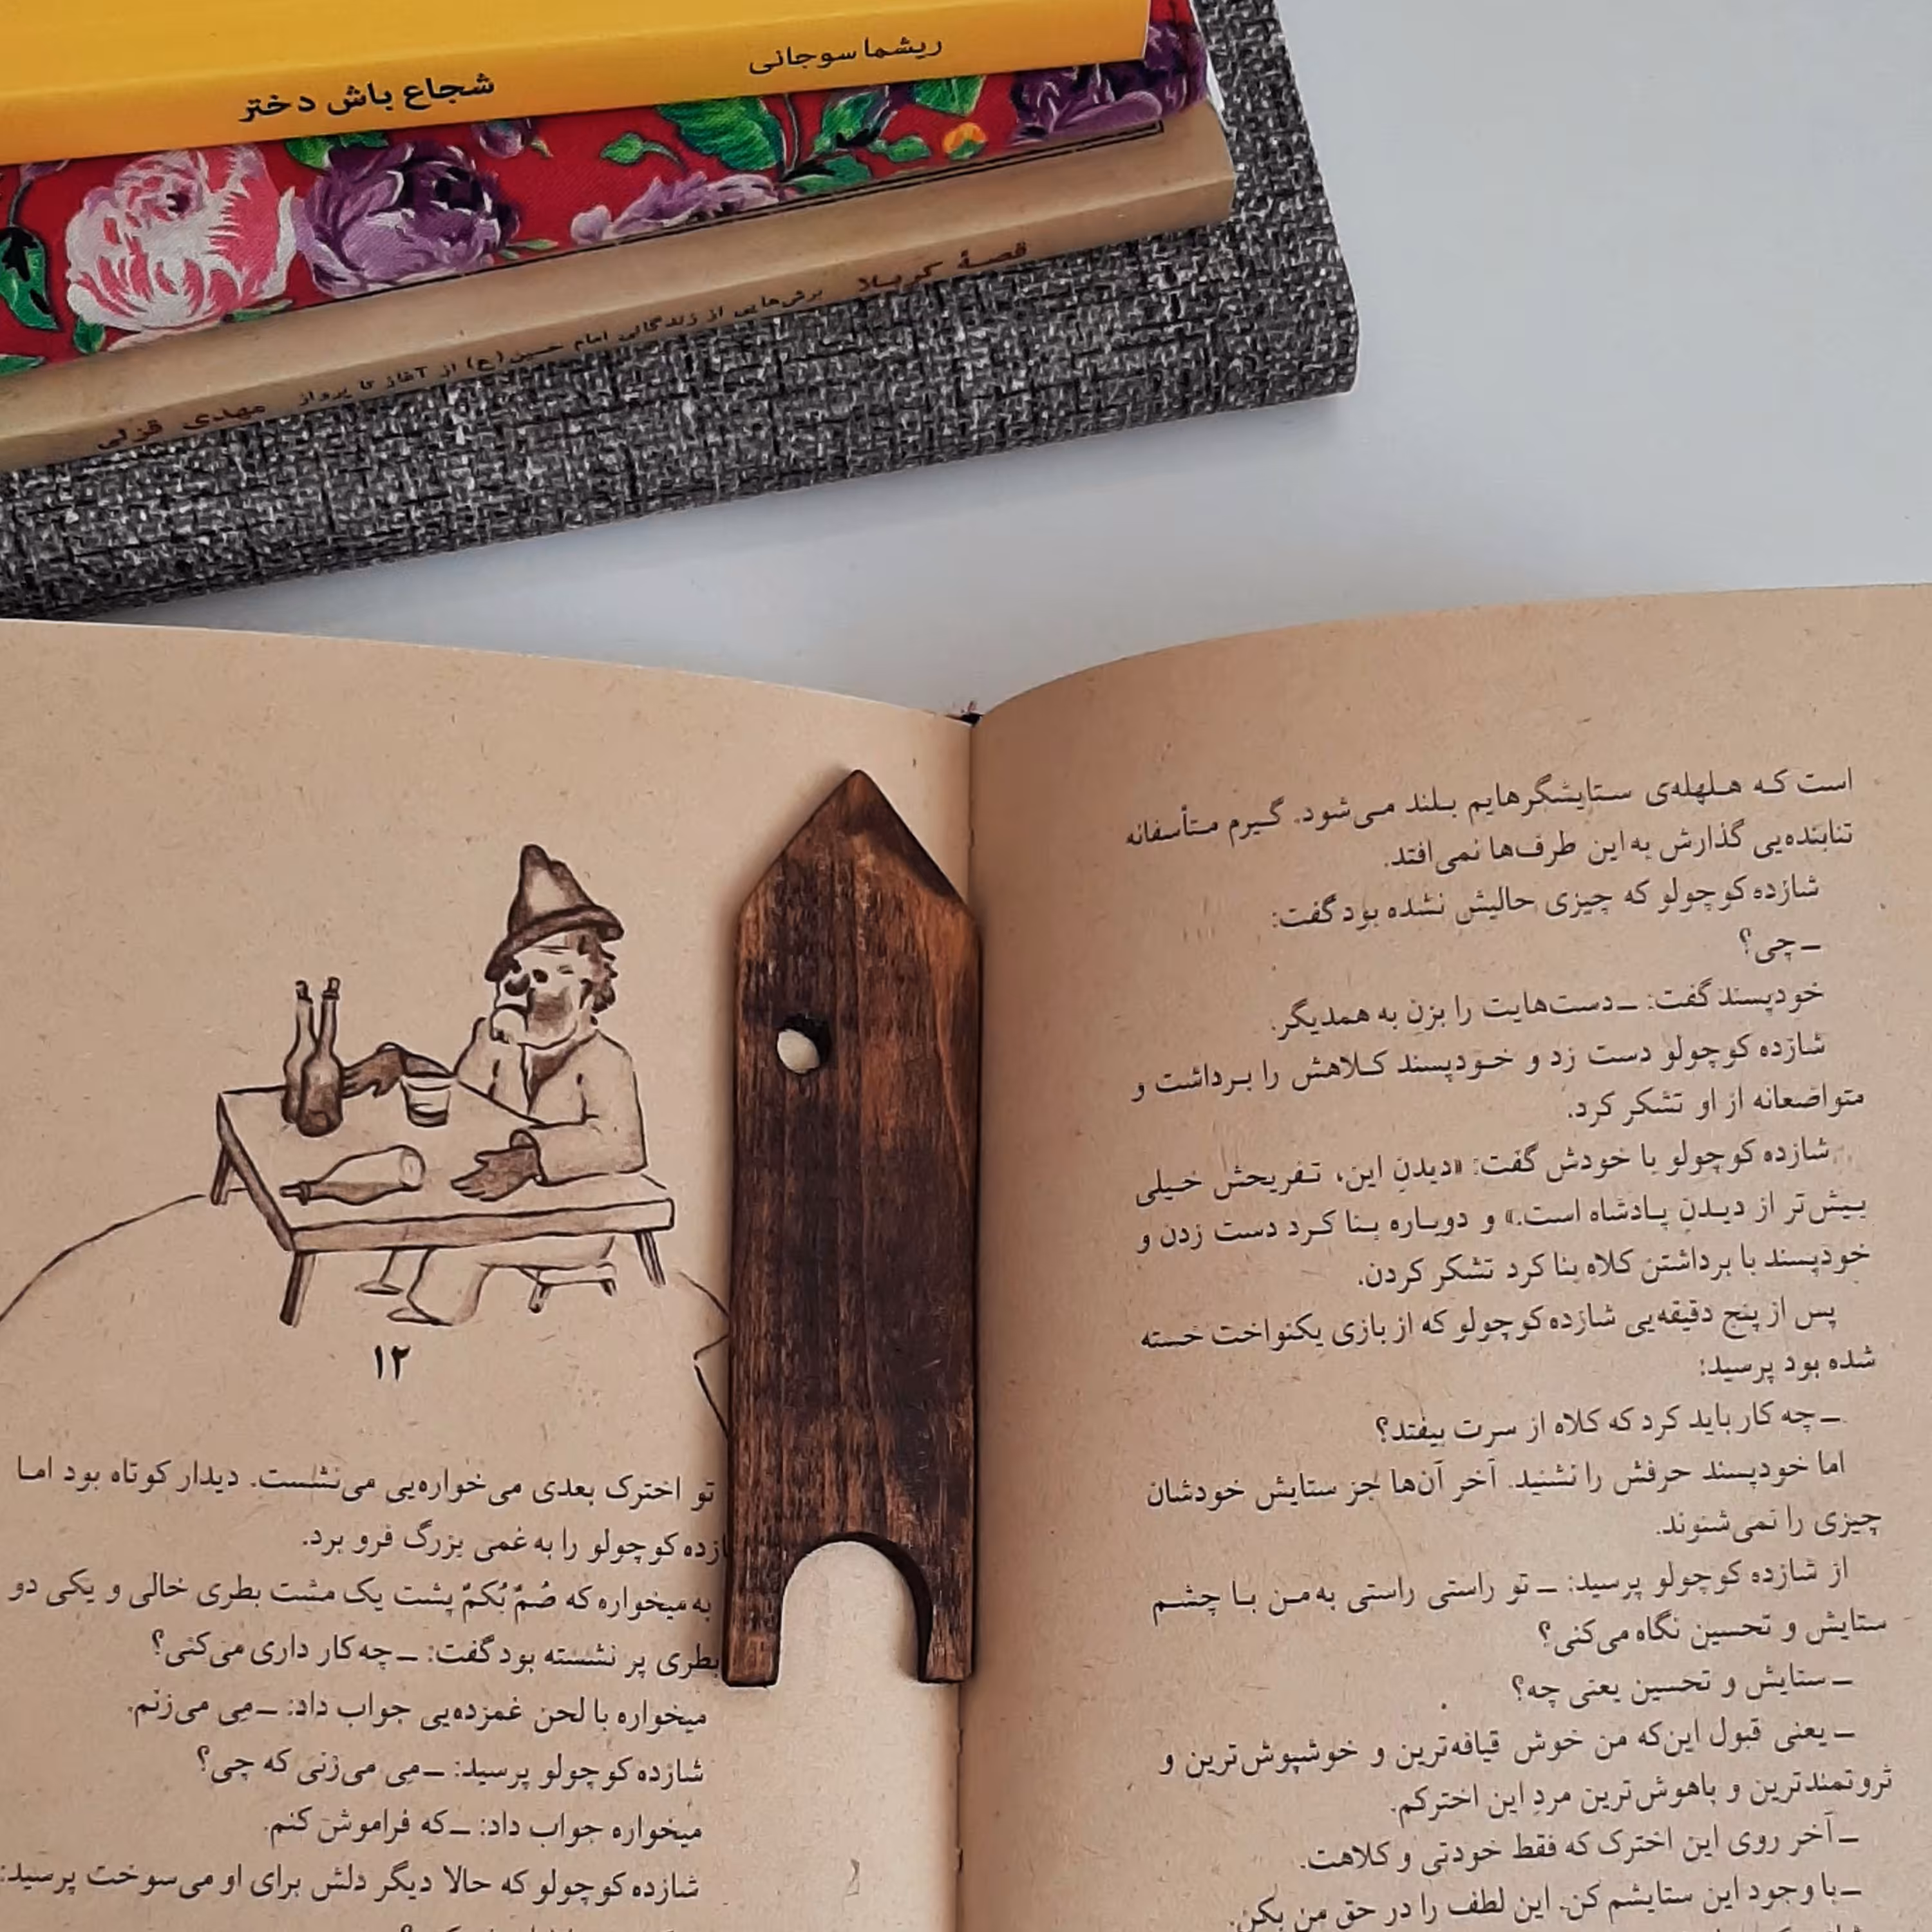 ریشما سوجانی
شجاع باش دختر
قصهٔ کربلا
برش‌هایی از زندگانی امام حسین(ع) از آغاز تا پرواز
مهدی قزلی
است که هلهله‌ی ستایشگرهایم بلند می‌شود. گیرم متأسفانه
تنابنده‌یی گذارش به این طرف‌ها نمی‌افتد.
شازده کوچولو که چیزی حالیش نشده بود گفت:
ــ چی؟
خودپسند گفت: ــ دست‌هایت را بزن به همدیگر.
شازده کوچولو دست زد و خودپسند کلاهش را برداشت و
متواضعانه از او تشکر کرد.
شازده کوچولو با خودش گفت: «دیدنِ این، تفریحش خیلی
بیش‌تر از دیدنِ پادشاه است.» و دوباره بنا کرد دست زدن و
خودپسند با برداشتن کلاه بنا کرد تشکر کردن.
پس از پنج دقیقه‌یی شازده کوچولو که از بازی یکنواخت خسته
شده بود پرسید:
ــ چه کار باید کرد که کلاه از سرت بیفتد؟
اما خودپسند حرفش را نشنید. آخر آن‌ها جز ستایش خودشان
چیزی را نمی‌شنوند.
از شازده کوچولو پرسید: ــ تو راستی راستی به من با چشم
ستایش و تحسین نگاه می‌کنی؟
ــ ستایش و تحسین یعنی چه؟
ــ یعنی قبول این‌که من خوش قیافه‌ترین و خوشپوش‌ترین و
ثروتمندترین و باهوش‌ترین مردِ این اخترکم.
ــ آخر روی این اخترک که فقط خودتی و کلاهت.
ــ با وجود این ستایشم کن. این لطف را در حق من بکن.
۱۲
تو اخترک بعدی می‌خواره‌یی می‌نشست. دیدار کوتاه بود اما
کوچولو را به غمی بزرگ فرو برد.
به میخواره که صُمٌ بُکمٌ پشت یک مشت بطری خالی و یکی دو
بطری پر نشسته بود گفت: ــ چه کار داری می‌کنی؟
میخواره با لحن غمزده‌یی جواب داد: ــ مِی می‌زنم.
شازده کوچولو پرسید: ــ مِی می‌زنی که چی؟
میخواره جواب داد: ــ که فراموش کنم.
شازده کوچولو که حالا دیگر دلش برای او می‌سوخت پرسید: